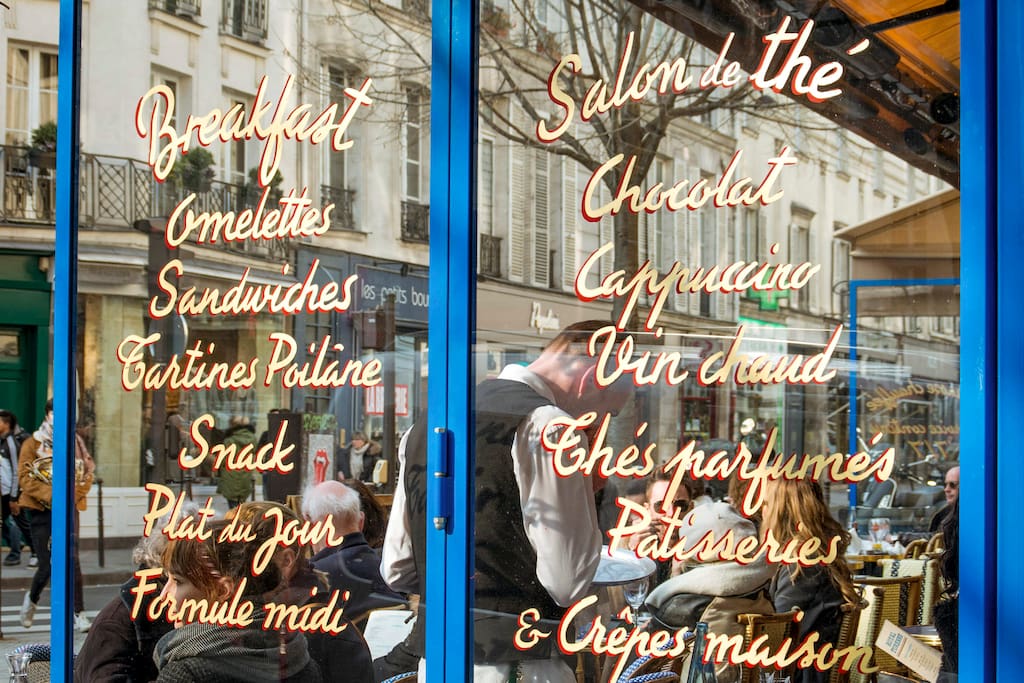 Breakfast
Omelettes
Sandwiches
Tartines Poilâne
Snack
Plat du Jour
Formule midi
Salon de thé
Chocolat
Cappuccino
Vin chaud
Thés parfumés
Patisseries
& Crêpes maison
les petits bou